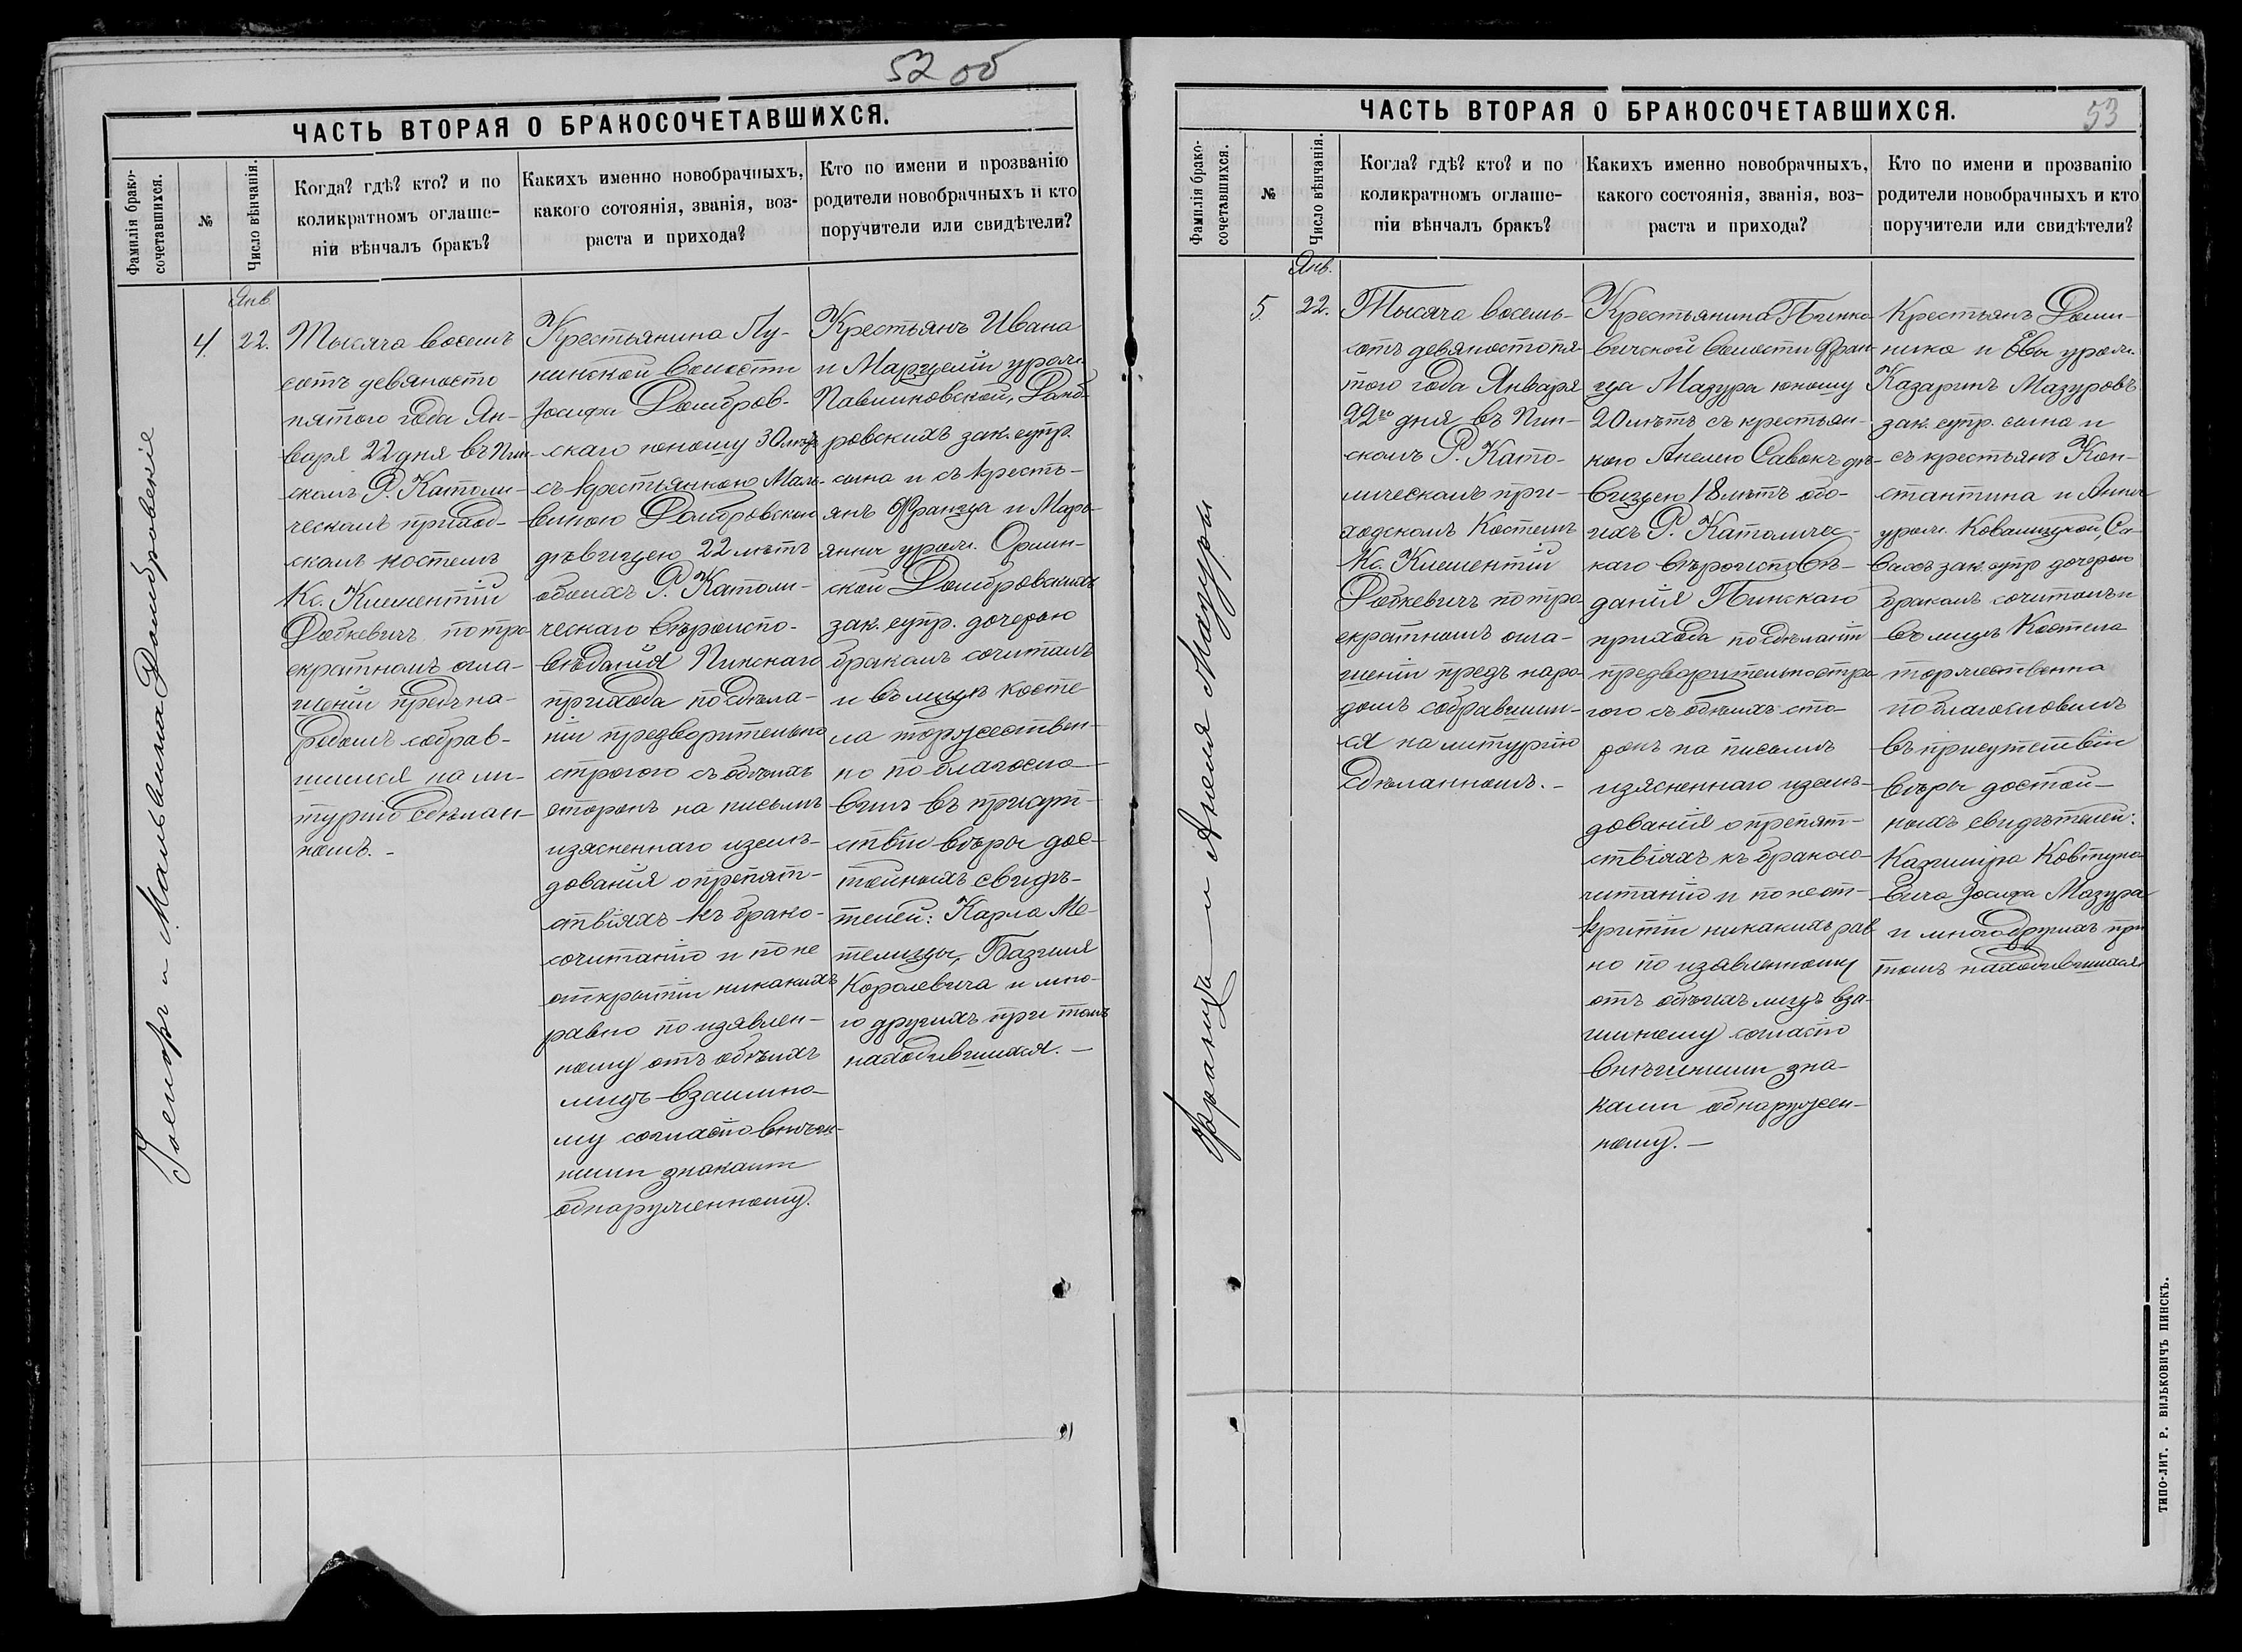 52 об
ЧАСТЬ ВТОРАЯ О БРАКОСОЧЕТАВШИХСЯ.
Фамилія брако-
сочетавшихся.
№
Число вѣнчанія.
Когда? гдѣ? кто? и по
коликратномъ оглаше-
ніи вѣнчалъ бракъ?
Какихъ именно новобрачныхъ,
какого сотоянія, званія, воз-
раста и прихода?
Кто по имени и прозванію
родители новобрачныхъ и кто
поручители или свидѣтели?
Іосифъ и Мальвина Домбровскіе
4
Янв.
22.
Тысяча восемъ
сотъ девяносто
пятого года Ян-
варя 22 дня въ Пин-
скомъ Р. Католи-
ческомъ приход-
скомъ костелѣ
Кс. Климентій
Добкевичъ по тро
екратномъ огла-
шеніи предъ на-
родомъ собрав-
шимся на ли-
тургію сдѣлан-
номъ. -
Крестьянина Лу-
нинской волости
Іосифа Домбров-
скаго юношу 30 лѣтъ
съ крестьянкою Маль-
виною Домбровскою
дѣвицею 22 лѣтъ
обоихъ Р. Католи-
ческаго вѣроиспо-
вѣданія Пинскаго
прихода по сдѣла-
ніи предворительно
строгого съ обѣихъ
сторонъ на письмѣ
изясненнаго изслѣ-
дованія о препят-
ствіяхъ къ брако-
сочитанію и по не
открытіи никакихъ
равно по изявлен-
ному отъ обѣихъ
лицъ взаимно-
му согласію внѣш-
ними знаками
обнаруженному.
Крестьянъ Ивана
и Марцели урож.
Павлиновской, Домб-
ровскихъ зак. супр.
сына и съ кресть-
янъ Франца и Марь-
янны урож.
ской Домбровскихъ
зак. супр. дочерью
бракомъ сочиталъ
и въ лицѣ косте
ла торжествен-
но поблагосло-
вилъ въ присут-
ствіи вѣры дос-
тойныхъ свидѣ-
телей: Карла Ме-
телицы, Базыля
Королевича и мно-
го другихъ при томъ
находившихся. -
ЧАСТЬ ВТОРАЯ О БРАКОСОЧЕТАВШИХСЯ.
53
Фамилія брако-
сочетавшихся.
№
Число вѣнчанія.
Когда? гдѣ? кто? и по
коликратномъ оглаше-
ніи вѣнчалъ бракъ?
Какихъ именно новобрачныхъ,
какого состоянія, званія, воз-
раста и прихода?
Кто по имени и прозванію
родители новобрачныхъ и кто
поручители или свидѣтели?
Францъ и Анеля Мазуры
5
Янв.
22.
Тысяча восемь-
сотъ девяносто пя-
того года Января
22го дня въ Пин-
скомъ Р. Като-
лическомъ при-
ходскомъ Костелѣ
Кс. Климентій
Добкевичъ по тро-
екратномъ огла-
шеніи предъ наро-
домъ собравшим-
ся на литургію
сдѣланномъ. -
Крестьянина Пинко-
вичской волости Фран-
ца Мазура юношу
20 лѣтъ съ крестьян-
кою Анелею Савокъ дѣ-
вицею 18 лѣтъ обо-
ихъ Р. Католичес-
каго вѣроисповѣ-
данія Пинскаго
прихода по сдѣланіи
предворительно стро-
гого съ обѣихъ сто-
ронъ на письмѣ
изясненнаго изслѣ-
дованія о препят-
ствіяхъ къ бракосо-
читанію и по неот-
крытіи никакихъ рав-
но по изявленному
отъ обѣихъ лицъ вза-
имному согласію
внѣшними зна-
ками обнаружен-
ному. -
Крестьянъ Доми-
ника и Евы урож.
Казаринъ Мазуровъ
зак. супр. сына и
съ крестьянъ Кон-
стантина и Анны
урож. Ковалицкой, Са-
вокъ зак. супр дочерью
бракомъ сочиталъ и
въ лицѣ Костела
торжественна
поблагословилъ
въ присутствіи
вѣры достой-
ныхъ свидѣтелей:
Казиміра Ковтуно-
вича Іосифа Мазура
и много другихъ при
томъ находившихся
ТИПО-ЛИТ. Р. ВИЛЬКОВИЧЪ ПИНСКЪ.